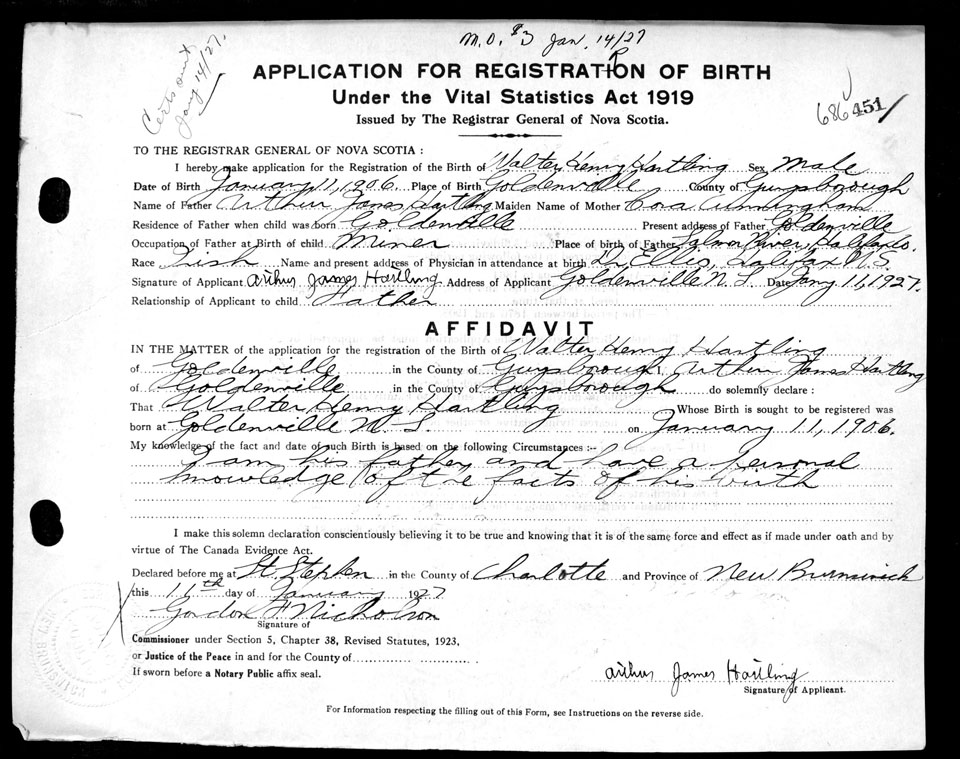 M.O. $3 Jan. 14/27
Certs sent
Jany 14/27.
APPLICATION FOR REGISTRATION OF BIRTH
Under the Vital Statistics Act 1919
686 451
Issued by The Registrar General of Nova Scotia.
TO THE REGISTRAR GENERAL OF NOVA SCOTIA :
I hereby make application for the Registration of the Birth of Walter Henry Hartling Sex Male
Date of Birth January 11, 1906. Place of Birth Goldenville County of Guysborough
Name of Father Arthur James Hartling Maiden Name of Mother Cora Cunningham
Residence of Father when child was born Goldenville Present address of Father Goldenville
Occupation of Father at Birth of child Miner Place of birth of Father Salmon River, Halifax Co.
Race Irish Name and present address of Physician in attendance at birth Dr. Ellis, Halifax N.S.
Signature of Applicant Arthur James Hartling Address of Applicant Goldenville N.S. Date Jany 11, 1927.
Relationship of Applicant to child Father
AFFIDAVIT
IN THE MATTER of the application for the registration of the Birth of Walter Henry Hartling
of Goldenville in the County of Guysborough I, Arthur James Hartling
of Goldenville in the County of Guysborough do solemnly declare :
That Walter Henry Hartling Whose Birth is sought to be registered was
born at Goldenville N.S. on January 11, 1906.
My knowledge of the fact and date of such Birth is based on the following Circumstances :-
I am his father and have a personal
knowledge of the facts of his birth
I make this solemn declaration conscientiously believing it to be true and knowing that it is of the same force and effect as if made under oath and by
virtue of The Canada Evidence Act.
Declared before me at St. Stephen in the County of Charlotte and Province of New Brunswick
this 11th day of January 1927
Gordon F Nicholson
Signature of
Commissioner under Section 5, Chapter 38, Revised Statutes, 1923,
or Justice of the Peace in and for the County of
If sworn before a Notary Public affix seal.
Arthur James Hartling
Signature of Applicant.
For Information respecting the filling out of this Form, see Instructions on the reverse side.